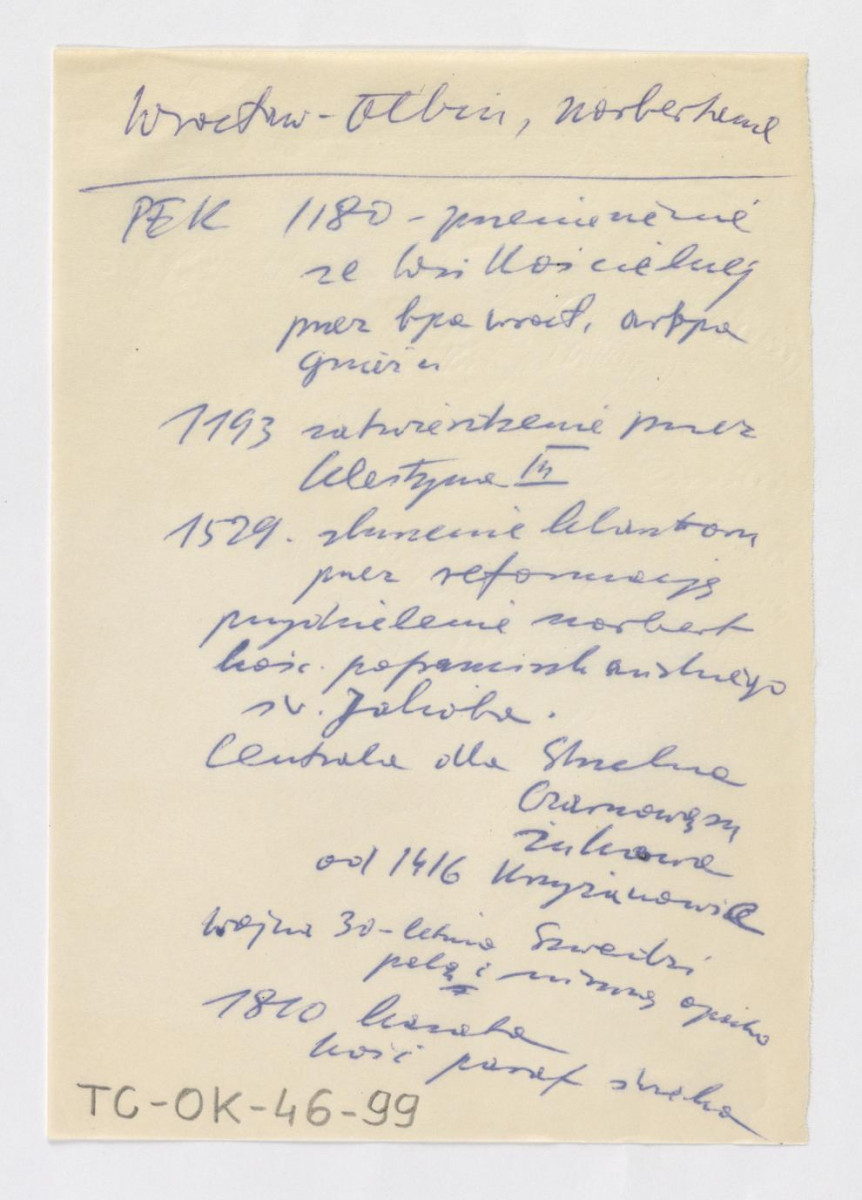 Wrocław-Ołbin, norbertanie
PEK 1180 - przeniesienie
ze Wsi Kościelnej
przez bpa wrocł. arbpa
gnieźn
1193 zatwierdzenie przez
Celestyna III
1529. zburzenie klasztoru
przez reformację
przydzielenie norbert
kośc. pofranciszkańskiego
św. Jakuba.
Centrala dla Strzelna
Czarnowąsy
Żukowa
od 1416 Krzyżanowice
Wojna 30-letnia Szwedzi
palą i niszczą
1810 kasata
kość paraf
TC-OK-46-99